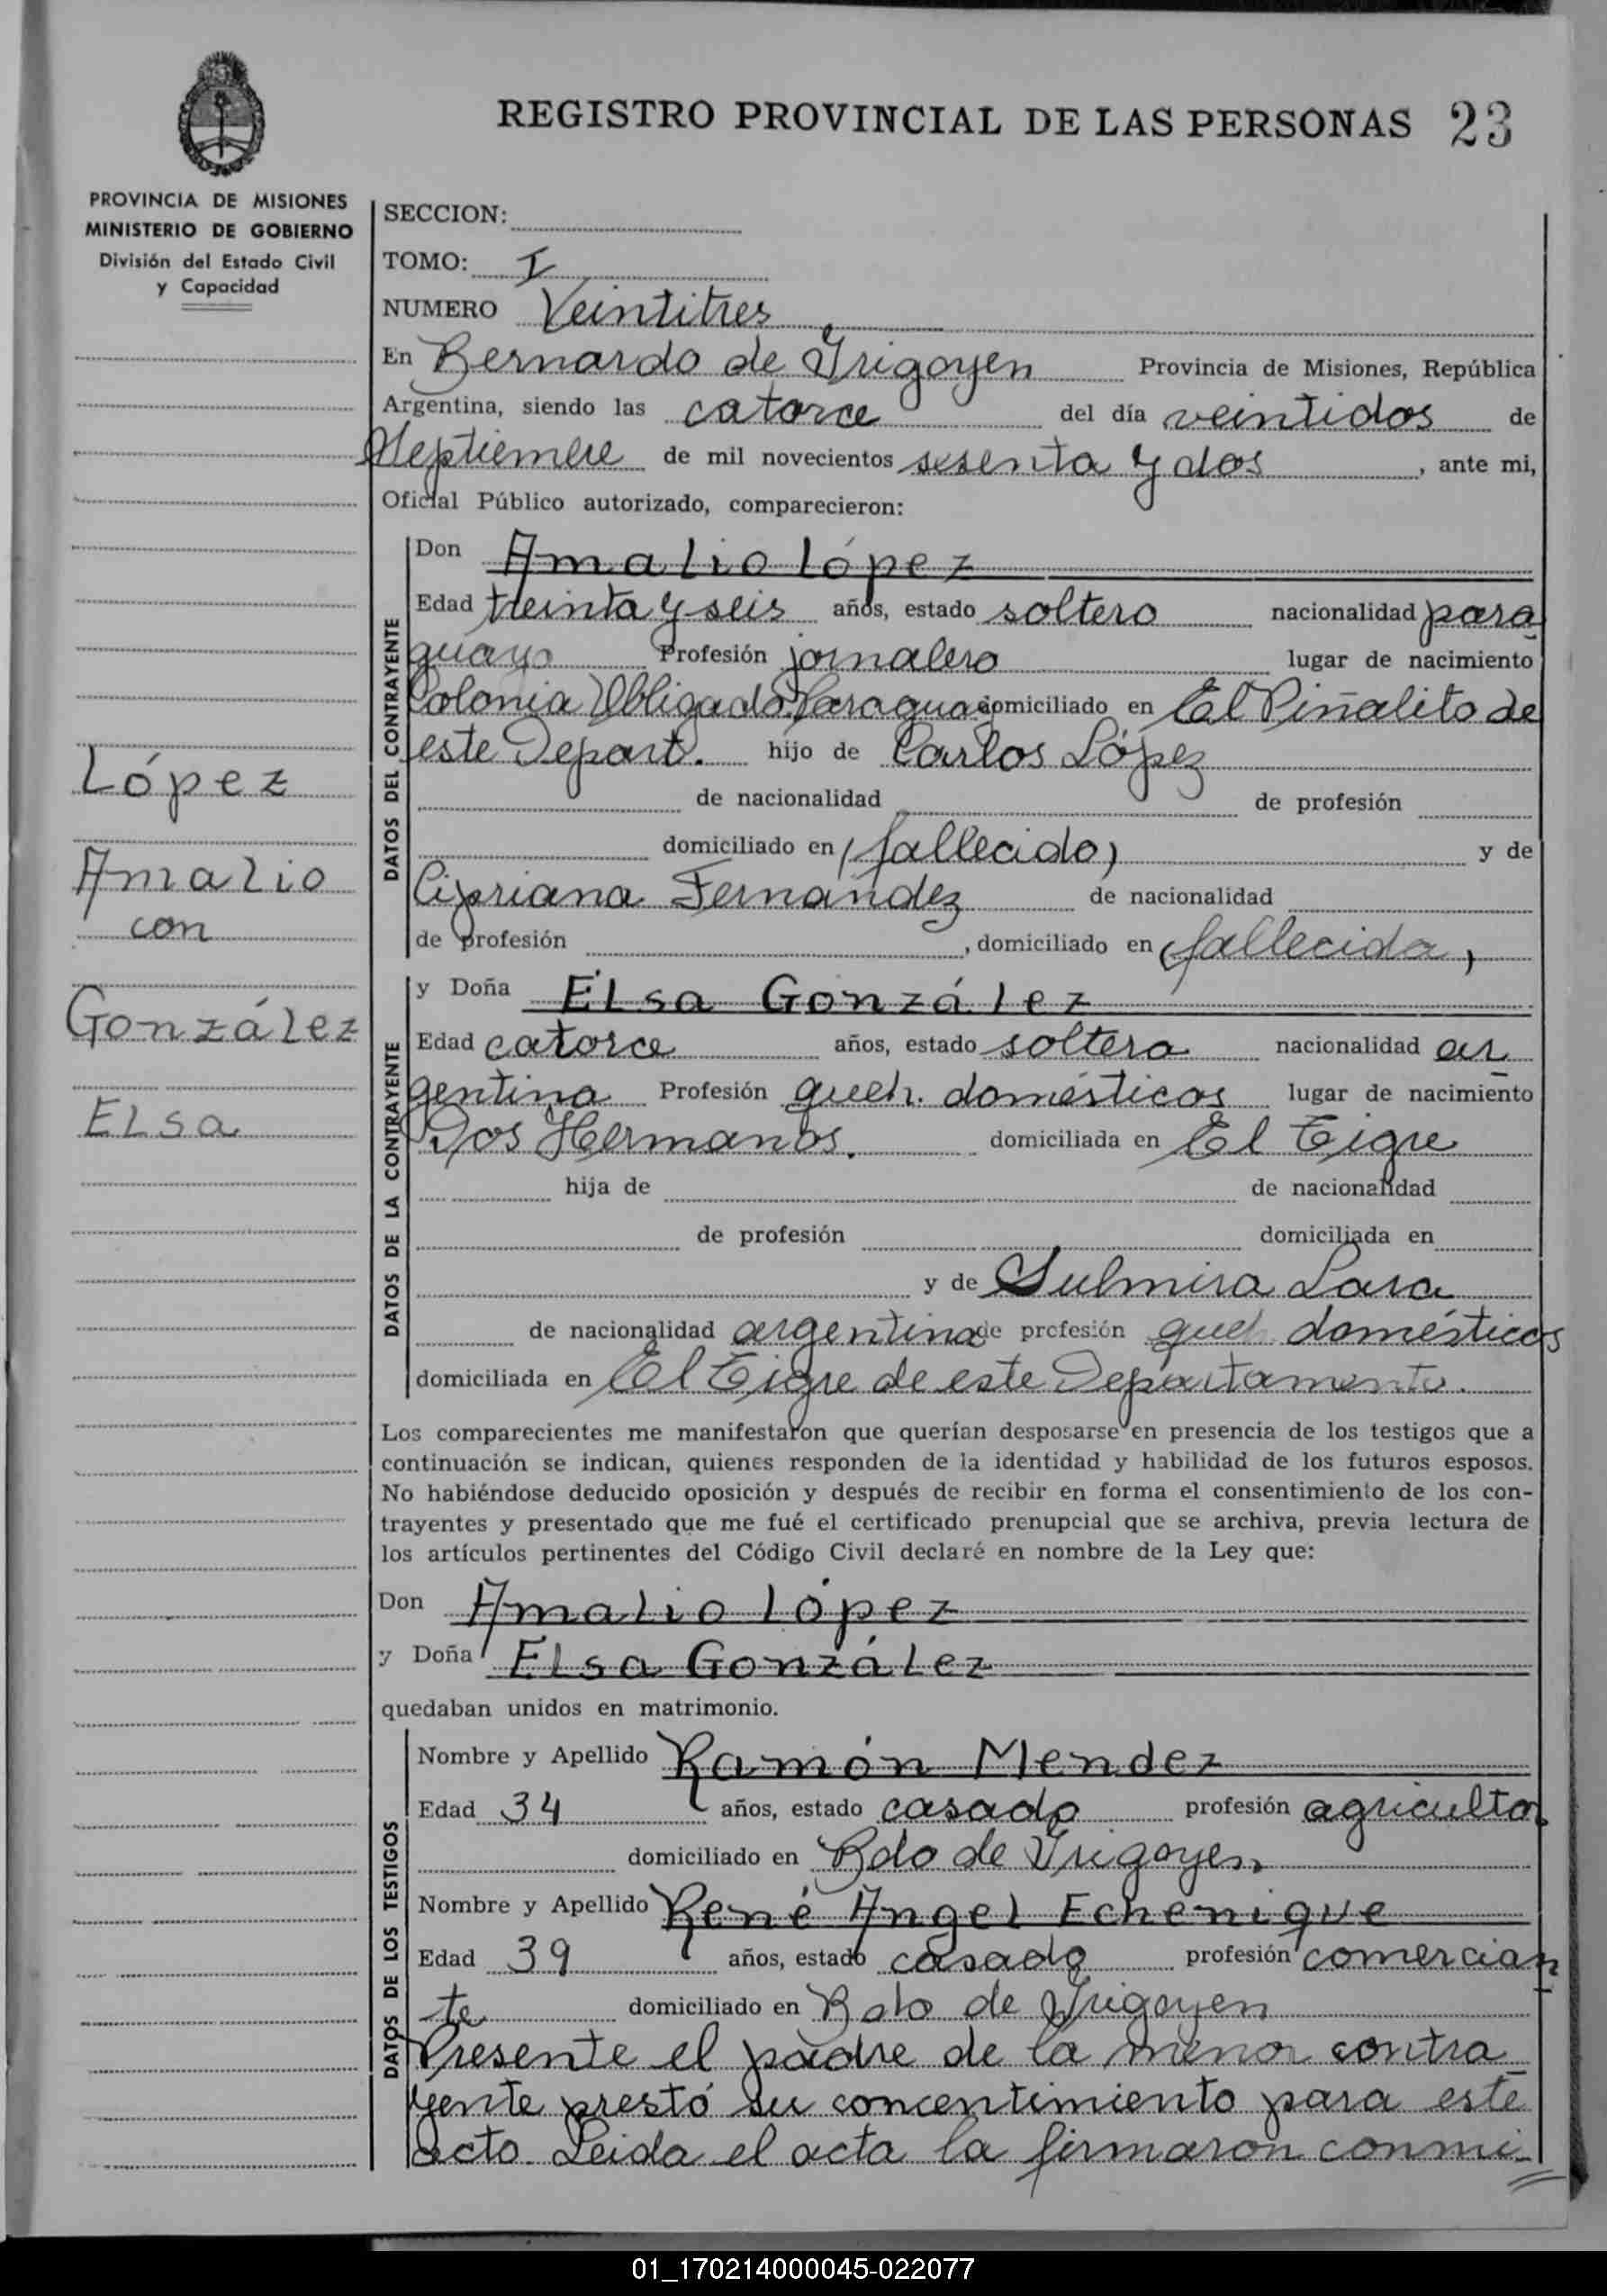 REGISTRO PROVINCIAL DE LAS PERSONAS 23
PROVINCIA DE MISIONES
MINISTERIO DE GOBIERNO
División del Estado Civil
y Capacidad
López
Amalio
con
González
Elsa
SECCION:
TOMO: I
NUMERO Veintitres
En Bernardo de Irigoyen Provincia de Misiones, República
Argentina, siendo las catorce del día veintidos de
Septiembre de mil novecientos sesenta y dos, ante mi,
Oficial Público autorizado, comparecieron:
DATOS DEL CONTRAYENTE
Don Amalio López
Edad treinta y seis años, estado soltero nacionalidad para
guayo Profesión jornalero lugar de nacimiento
Colonia Obligado Paraguay domiciliado en El Piñalito de
este Depart. hijo de Carlos López
de nacionalidad de profesión
domiciliado en (fallecido) y de
Cipriana Fernández de nacionalidad
de profesión , domiciliado en (fallecida)
DATOS DE LA CONTRAYENTE
y Doña Elsa González
Edad catorce años, estado soltera nacionalidad ar
gentina Profesión queh. domésticos lugar de nacimiento
Dos Hermanos. domiciliada en El Tigre
hija de de nacionalidad
de profesión domiciliada en
y de Sulmira Lara
de nacionalidad argentina de profesión queh. domésticos
domiciliada en El Tigre de este Departamento.
Los comparecientes me manifestaron que querían desposarse en presencia de los testigos que a
continuación se indican, quienes responden de la identidad y habilidad de los futuros esposos.
No habiéndose deducido oposición y después de recibir en forma el consentimiento de los con-
trayentes y presentado que me fué el certificado prenupcial que se archiva, previa lectura de
los artículos pertinentes del Código Civil declaré en nombre de la Ley que:
Don Amalio López
y Doña Elsa González
quedaban unidos en matrimonio.
DATOS DE LOS TESTIGOS
Nombre y Apellido Ramón Mendez
Edad 34 años, estado casado profesión agricultor
domiciliado en Bdo de Irigoyen
Nombre y Apellido René Angel Echenique
Edad 39 años, estado casado profesión comercian
te domiciliado en Bdo de Irigoyen
Presente el padre de la menor contra
yente prestó su concentimiento para este
acto. Leida el acta la firmaron conmi
01_170214000045-022077